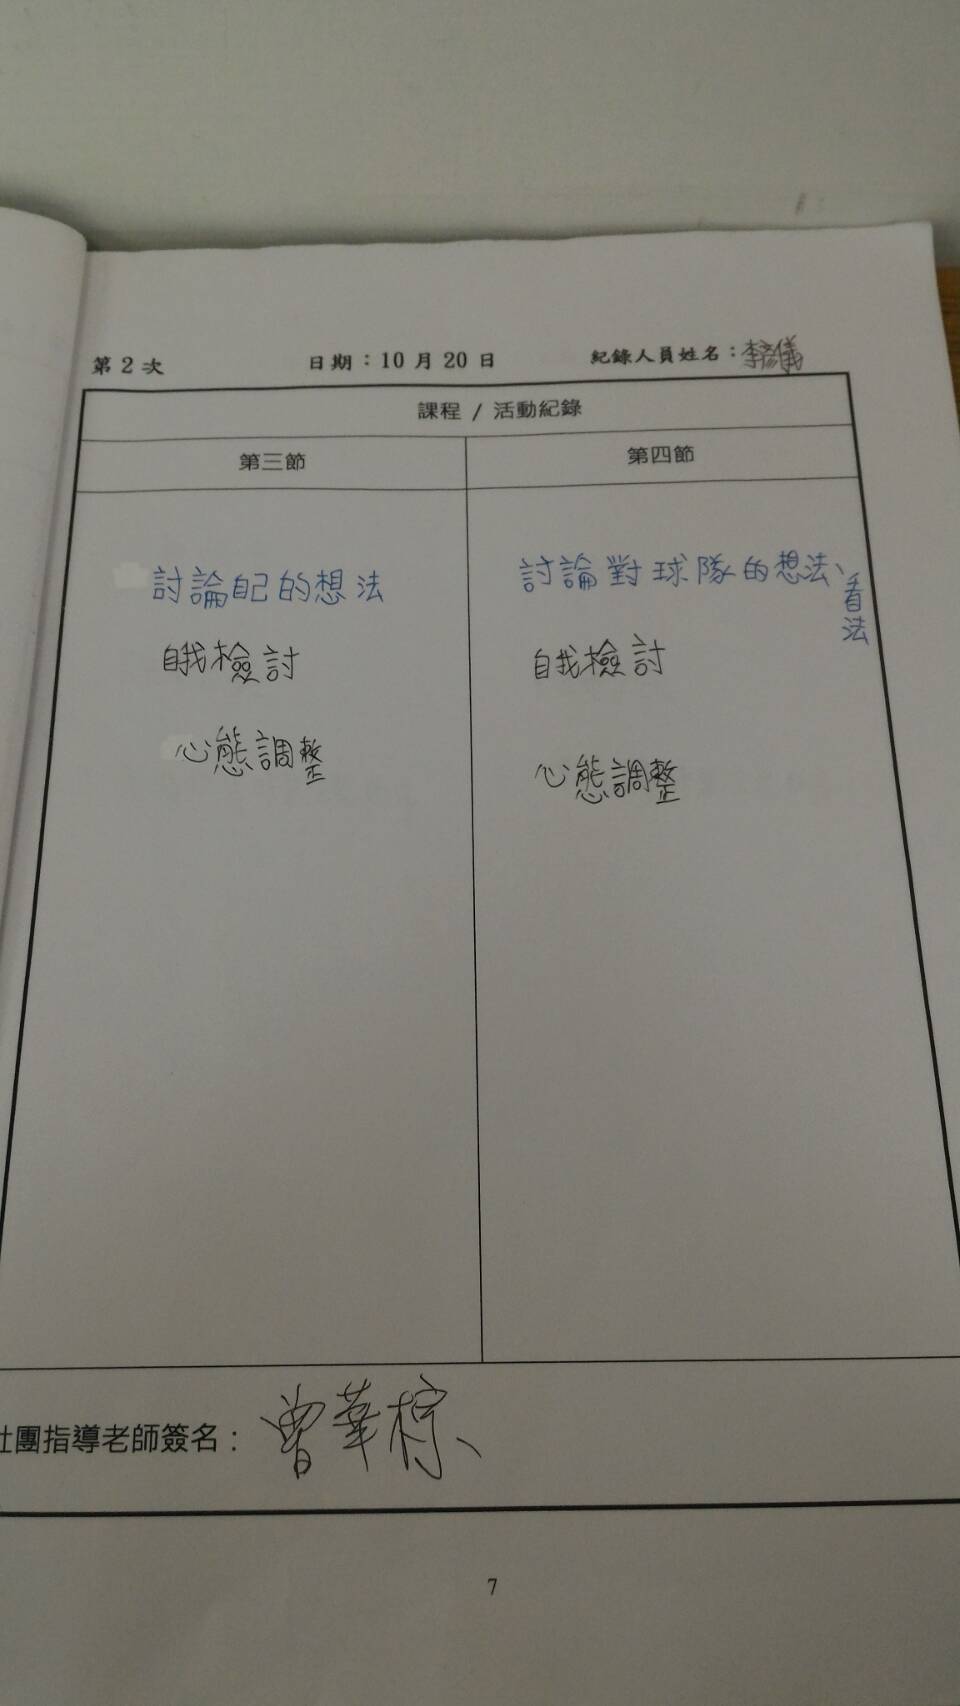 第 2 次
日期：10 月 20 日
紀錄人員姓名：李彥儀
課程 / 活動紀錄
第三節
第四節
討論自己的想法
自我檢討
心態調整
討論對球隊的想法、看法
自我檢討
心態調整
社團指導老師簽名：曾華棕
7